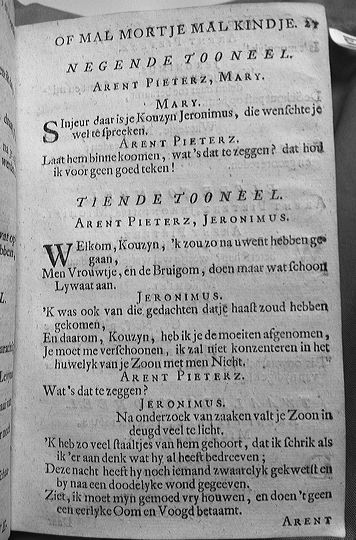 OF MAL MORTJE MAL KINDJE. 27
NEGENDE TOONEEL.
ARENT PIETERZ, MARY.
MARY.
SInjeur daar is je Kouzyn Jeronimus, die wenschte je
wel te spreeken.
ARENT PIETERZ.
Laat hem binne koomen, wat's dat te zeggen? dat hou
ik voor geen goed teken!
TIENDE TOONEEL.
ARENT PIETERZ, JERONIMUS.
WElkom, Kouzyn, 'k zou zo na uwent hebben ge-
gaan,
Men Vrouwtje, en de Bruigom, doen maar wat schoon
Lywaat aan.
JERONIMUS.
'K was ook van die gedachten datje haast zoud hebben
gekomen,
En daarom, Kouzyn, heb ik je de moeiten afgenomen,
Je moet me verschoonen, ik zal niet konzenteren in het
huwelyk van je Zoon met men Nicht.
ARENT PIETERZ.
Wat's dat te zeggen?
JERONIMUS.
Na onderzoek van zaaken valt je Zoon in
deugd veel te licht.
'K heb zo veel staaltjes van hem gehoort, dat ik schrik als
ik 'er aan denk wat hy al heeft bedreeven;
Deze nacht heeft hy noch iemand zwaarelyk gekwetst en
by naa een doodelyke wond gegeeven.
Ziet, ik moet myn gemoed vry houwen, en doen 't geen
een eerlyke Oom en Voogd betaamt.
ARENT